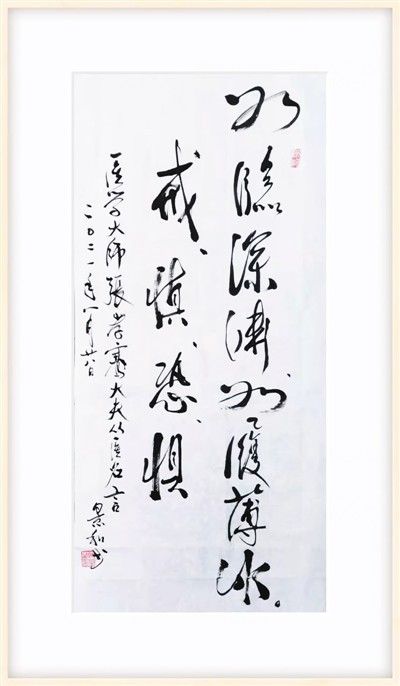 如臨深渊如履薄冰。
戒、慎、恐、惧
医学大师張孝骞大夫从医名言 景和书
二〇二一年八月廿八日